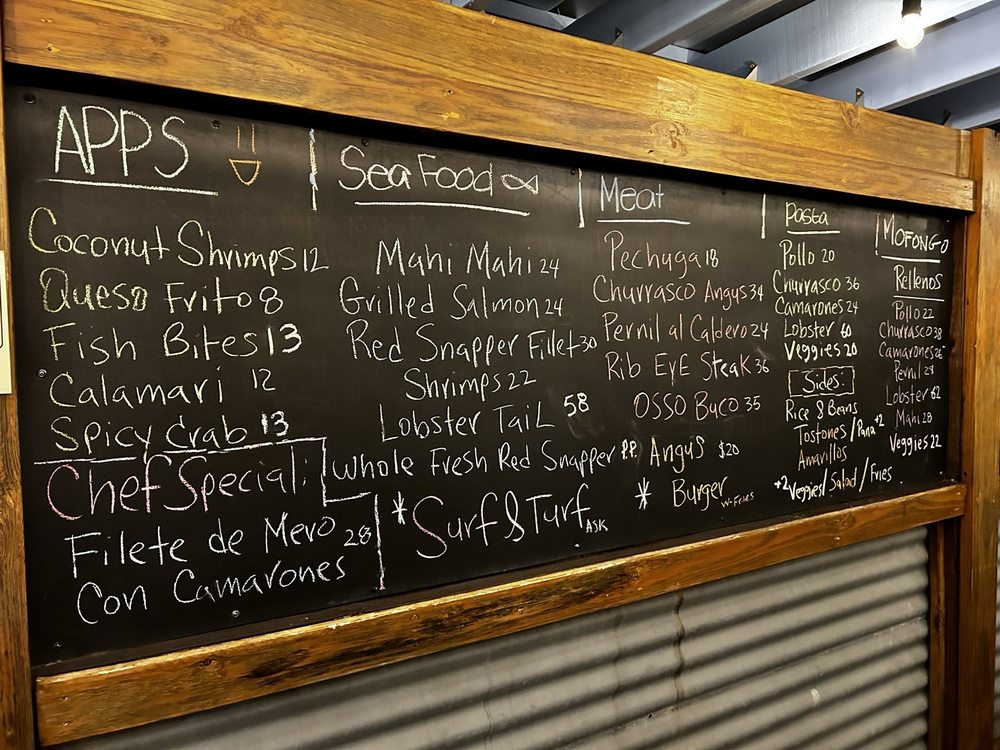 APPS
Coconut Shrimps 12
Queso Frito 8
Fish Bites 13
Calamari 12
Spicy Crab 13
Chef Special:
Filete de Mero 28
Con Camarones
SeaFood
Mahi Mahi 24
Grilled Salmon 24
Red Snapper Fillet 30
Shrimps 22
Lobster Tail 58
Whole Fresh Red Snapper P.P.
*Surf & Turf ASK
Meat
Pechuga 18
Churrasco Angus 34
Pernil al Caldero 24
Rib Eye Steak 36
Osso Buco 35
Angus $20
* Burger
W-Fries
Pasta
Pollo 20
Churrasco 36
Camarones 24
Lobster 60
Veggies 20
Sides:
Rice & Beans
Tostones / Pana +2
Amarillos
+2 Veggies / Salad / Fries
MOFONGO
Rellenos
Pollo 22
Churrasco 38
Camarones 26
Pernil 28
Lobster 62
Mahi 28
Veggies 22